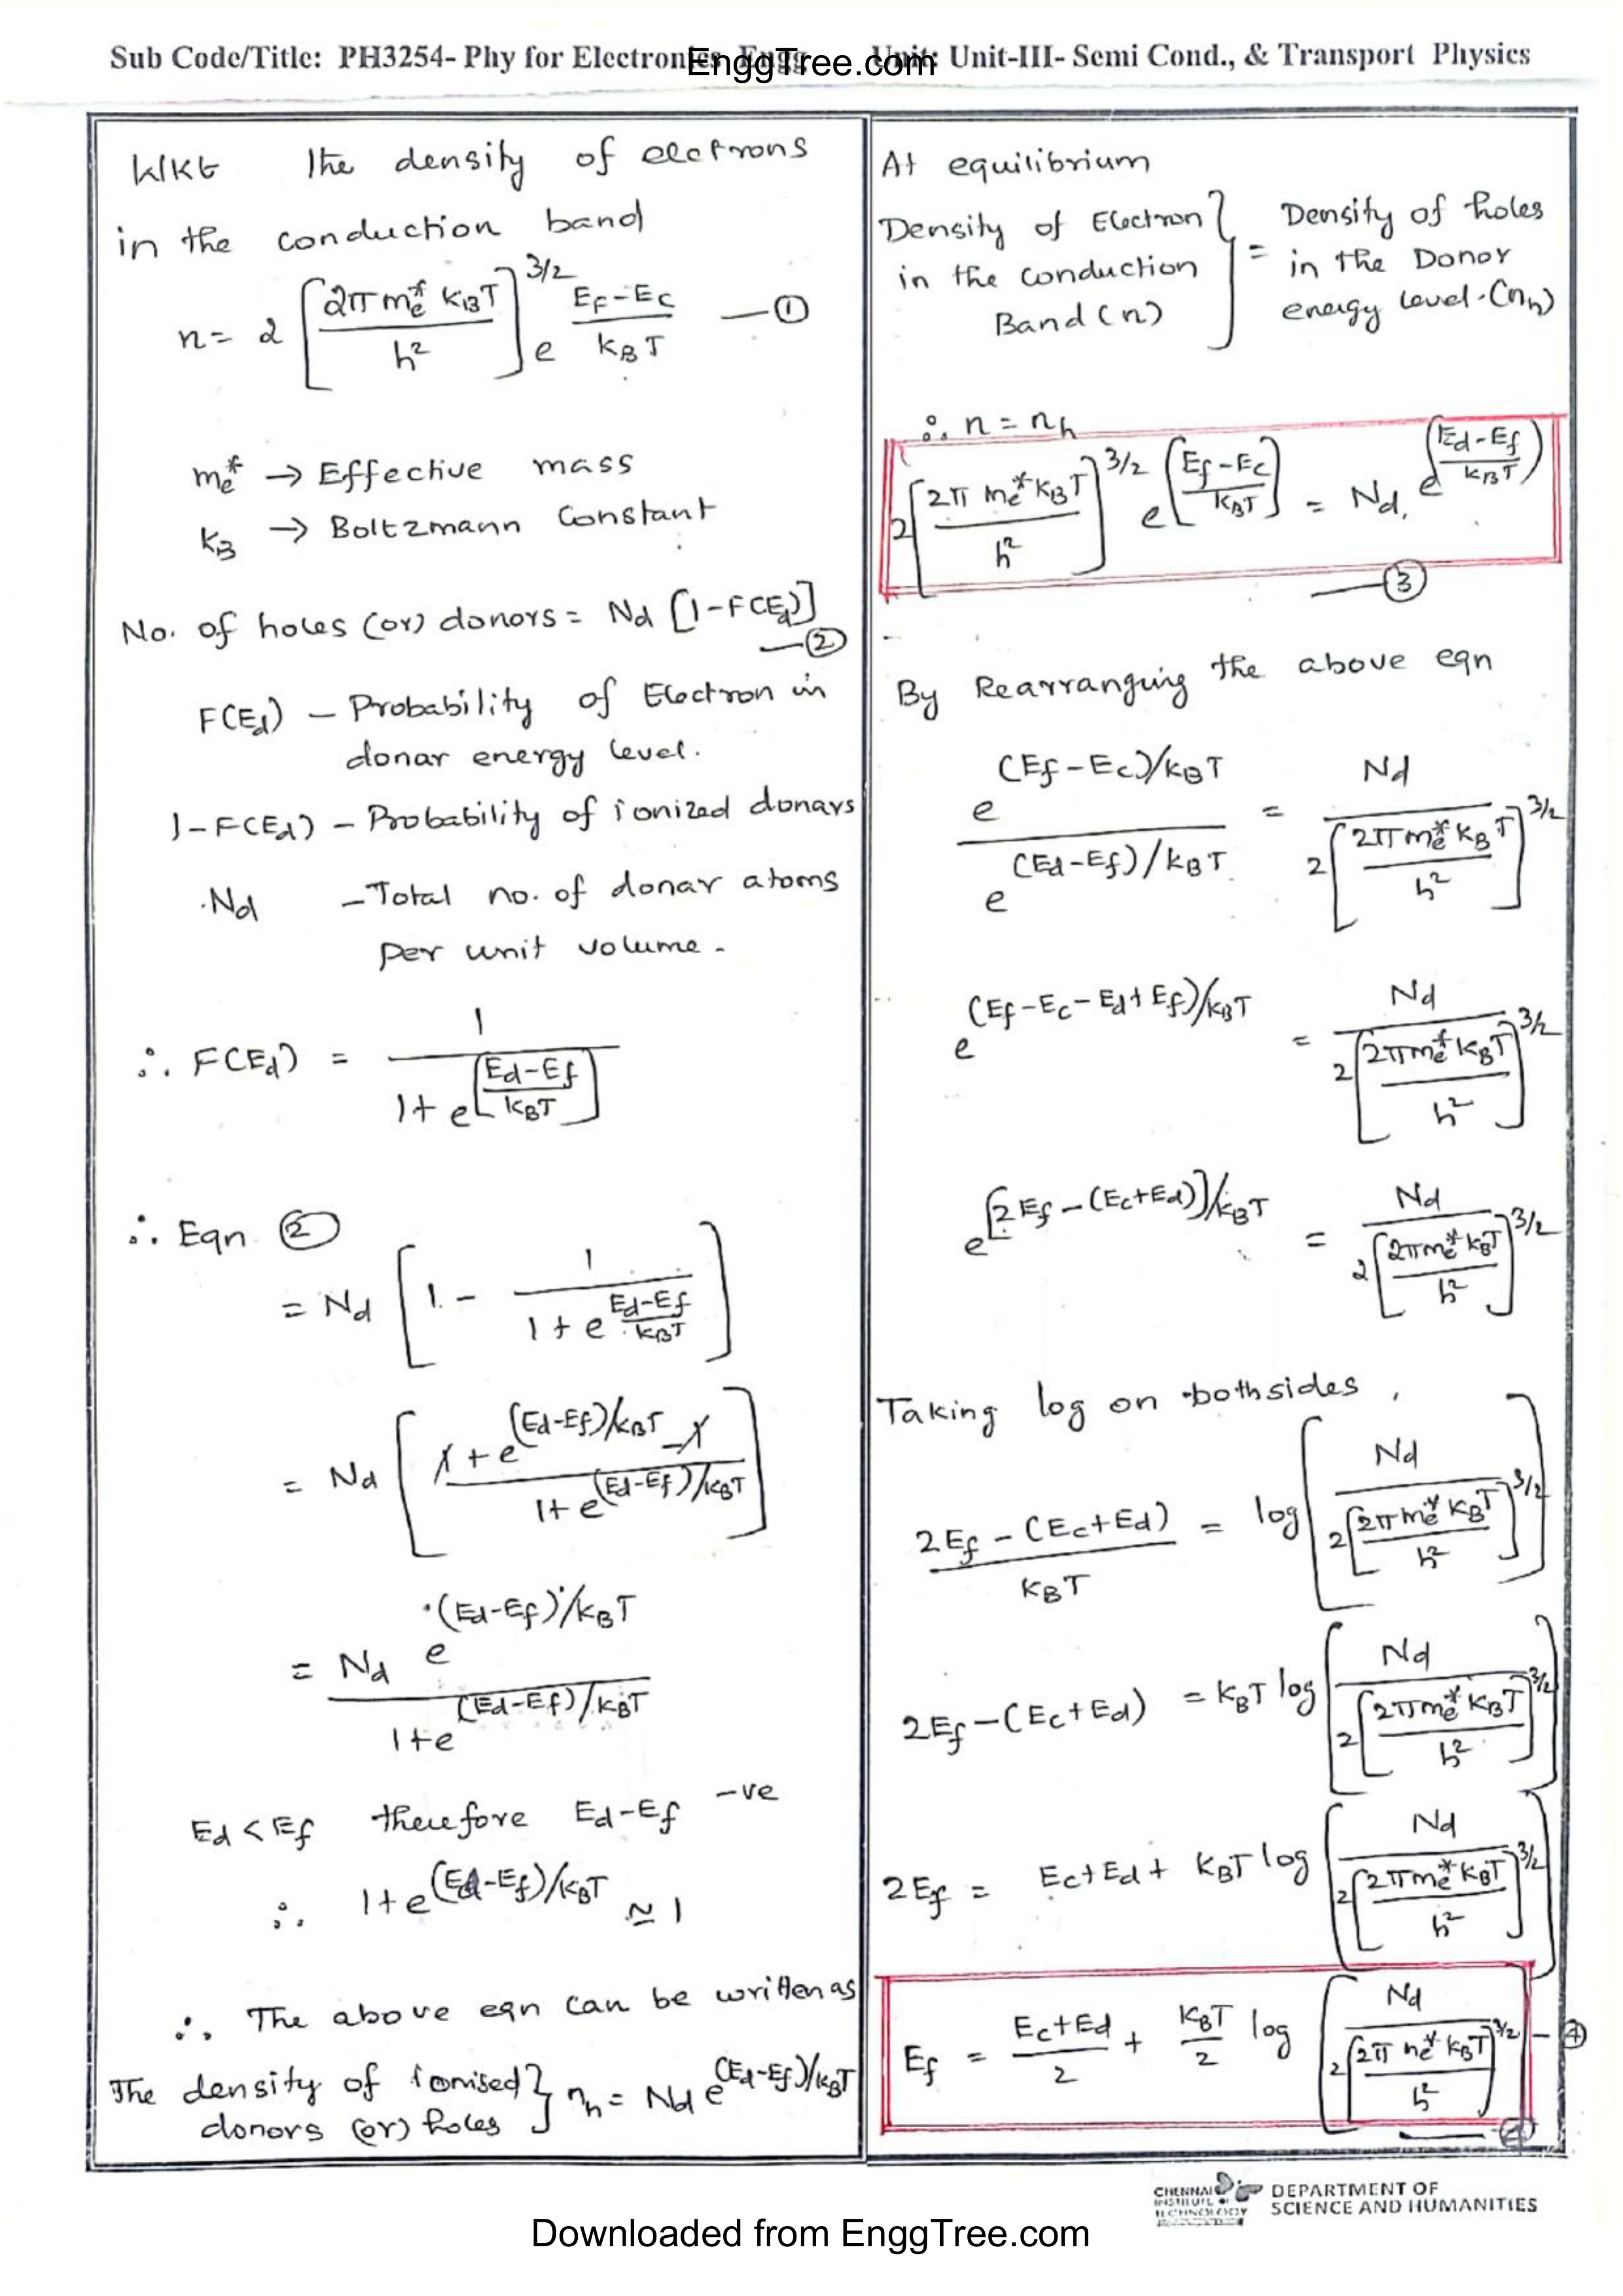 Sub Code/Title: PH3254- Phy for Electronics Engg Unit: Unit-III- Semi Cond., & Transport Physics
EnggTree.com
WKt The density of electrons
in the conduction band
n = 2 [2π me* KBT / h²]^3/2 e^(EF-EC / KBT) —①
me* → Effective mass
KB → Boltzmann Constant
No. of holes (or) donors = Nd [1-F(Ed)]
—②
F(Ed) – Probability of Electron in
donar energy level.
1-F(Ed) – Probability of ionized donars
Nd – Total no. of donar atoms
per unit volume.
∴ F(Ed) = 1 / 1+e^[Ed-Ef / KBT]
∴ Eqn ②
= Nd [1 - 1 / 1+e^(Ed-Ef / KBT)]
= Nd [1+e^(Ed-Ef)/KBT - 1 / 1+e^(Ed-Ef)/KBT]
= Nd e^(Ed-Ef)/KBT / 1+e^(Ed-Ef)/KBT
Ed < Ef therefore Ed-Ef -ve
∴ 1+e^(Ed-Ef)/KBT ≃ 1
∴ The above eqn can be written as
The density of ionised
donors (or) holes } nh = Nd e^(Ed-Ef)/KBT
At equilibrium
Density of Electron
in the conduction
Band (n) } = Density of holes
in the Donor
energy level. (nh)
∴ n = nh
2[2π me* KBT / h²]^3/2 e^[Ef-Ec / KBT] = Nd. e^(Ed-Ef / KBT)
—③
By Rearranging the above eqn
e^(Ef-Ec)/KBT / e^(Ed-Ef)/KBT = Nd / 2[2π me* KBT / h²]^3/2
e^(Ef-Ec-Ed+Ef)/KBT = Nd / 2[2π me* KBT / h²]^3/2
e^[2Ef-(Ec+Ed)]/KBT = Nd / 2[2π me* KBT / h²]^3/2
Taking log on both sides,
2Ef-(Ec+Ed) / KBT = log [Nd / 2[2π me* KBT / h²]^3/2]
2Ef-(Ec+Ed) = KBT log [Nd / 2[2π me* KBT / h²]^3/2]
2Ef = Ec+Ed + KBT log [Nd / 2[2π me* KBT / h²]^3/2]
Ef = Ec+Ed / 2 + KBT / 2 log [Nd / 2[2π me* KBT / h²]^3/2] —④
—④
CHENNAI
INSTITUTE OF
TECHNOLOGY
DEPARTMENT OF
SCIENCE AND HUMANITIES
Downloaded from EnggTree.com